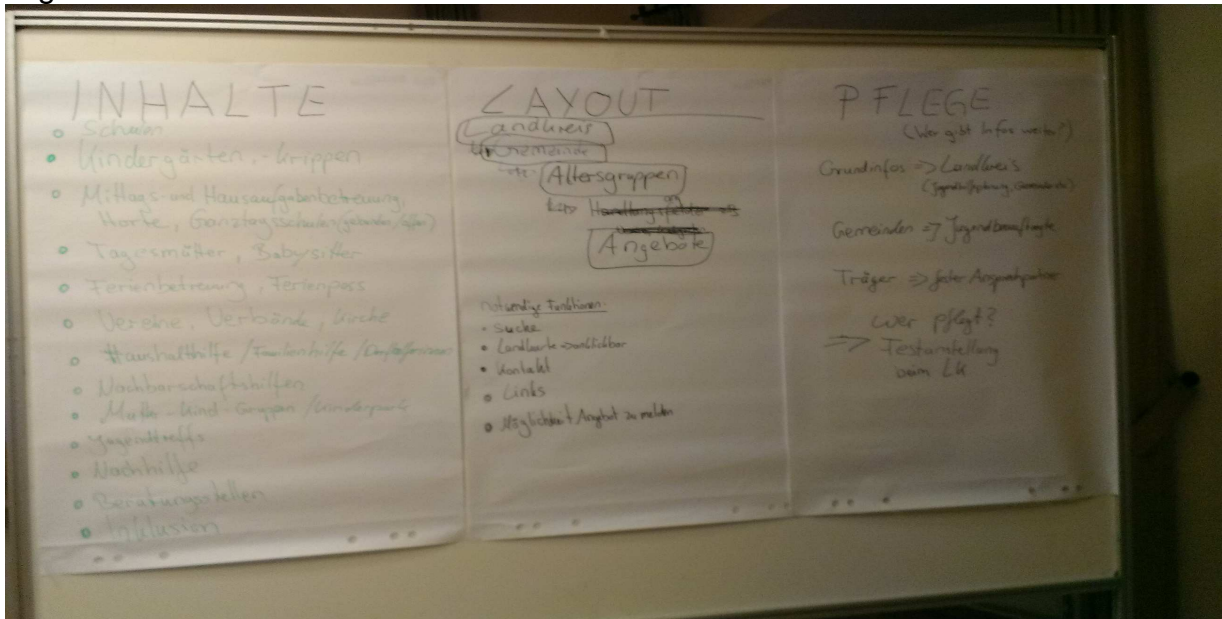 INHALTE
Schulen
Kindergärten, -krippen
Mittags- und Hausaufgabenbetreuung,
Horte, Ganztagsschulen (gebunden/offen)
Tagesmütter, Babysitter
Ferienbetreuung, Ferienpass
Vereine, Verbände, Kirche
Haushalthilfe / Familienhilfe /
Nachbarschaftshilfen
Mutter-Kind-Gruppen / Kinderpark
Jugendtreffs
Nachhilfe
Beratungsstellen
Inklusion
LAYOUT
Landkreis
Gemeinde
Altersgruppen
Angebote
notwendige Funktionen:
Suche
Landkarte => anklickbar
Kontakt
Links
Möglichkeit Angebot zu melden
PFLEGE
(Wer gibt Infos weiter?)
Grundinfos => Landkreis
Gemeinden => Jugendbeauftragte
Träger => fester Ansprechpartner
wer pflegt?
=> Festanstellung
beim LK